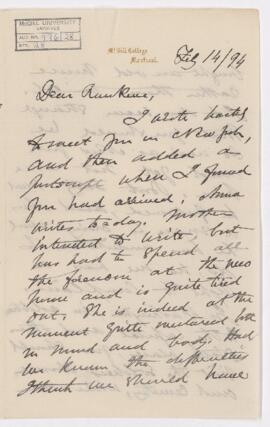 McGILL UNIVERSITY
ARCHIVES
ACC. NO.
REF.
McGill College
Montreal
Feb 14/94
Dear Rankine,
I wrote
to meet you in New York,
and then added a
Postscript when I found
you had arrived; Anna
writes to-day. Mother
intended to write, but
has had to spend all
the forenoon at the new
house and is quite tired
out. She is indeed at the
moment quite
in mind and body. Had
we known the difficulties
I think we should have